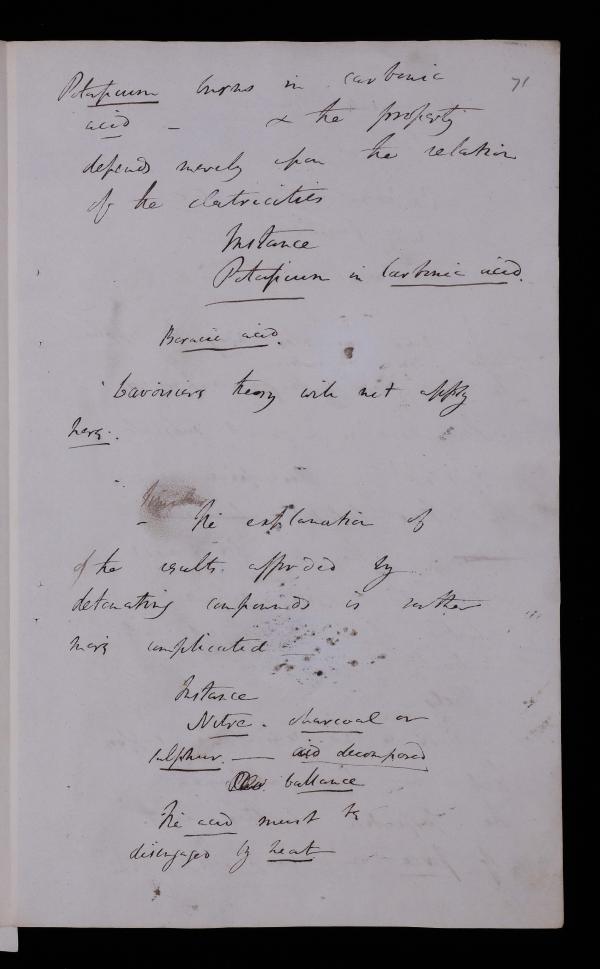 71
Potassium burns in carbonic
acid — & the property
depends merely upon the relation
of the electricities
Instance
Potassium in Carbonic acid.
Boracic acid.
Lavoisiers theory will not apply
here.
— The explanation of
of the results afforded by
detonating compounds is rather
more complicated
Instance
Nitre. charcoal or
sulphur. — acid decomposed
ballance
The acid must be
disengaged by heat